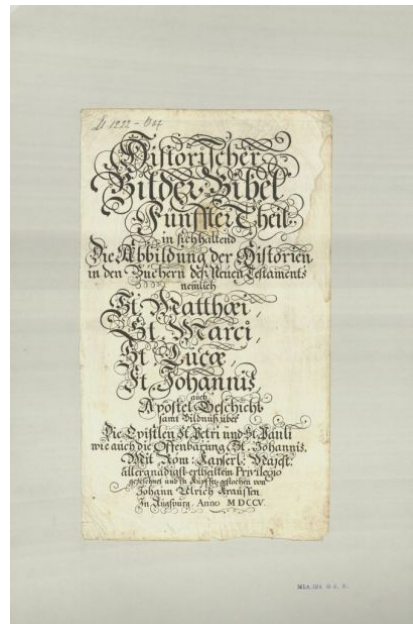 Historischer
Bilder-Bibel
Fünffter Theil
in sich haltend
Die Abbildung der Historien
in den Büchern deß Neuen Testaments
nemlich
St. Matthœi,
St. Marci,
St. Lucæ,
St. Johannis,
auch
Apostel-Geschicht
samt Bildnüß über
Die Epistlen St. Petri und St. Pauli
wie auch die Offenbarung St. Johannis.
Mit Röm: Kayserl: Majest:
allergnädigst ertheiltem Privilegio
gezeichnet und in Kupffer gestochen von
Johann Ulrich Kraussen
In Augspurg. Anno MDCCV.